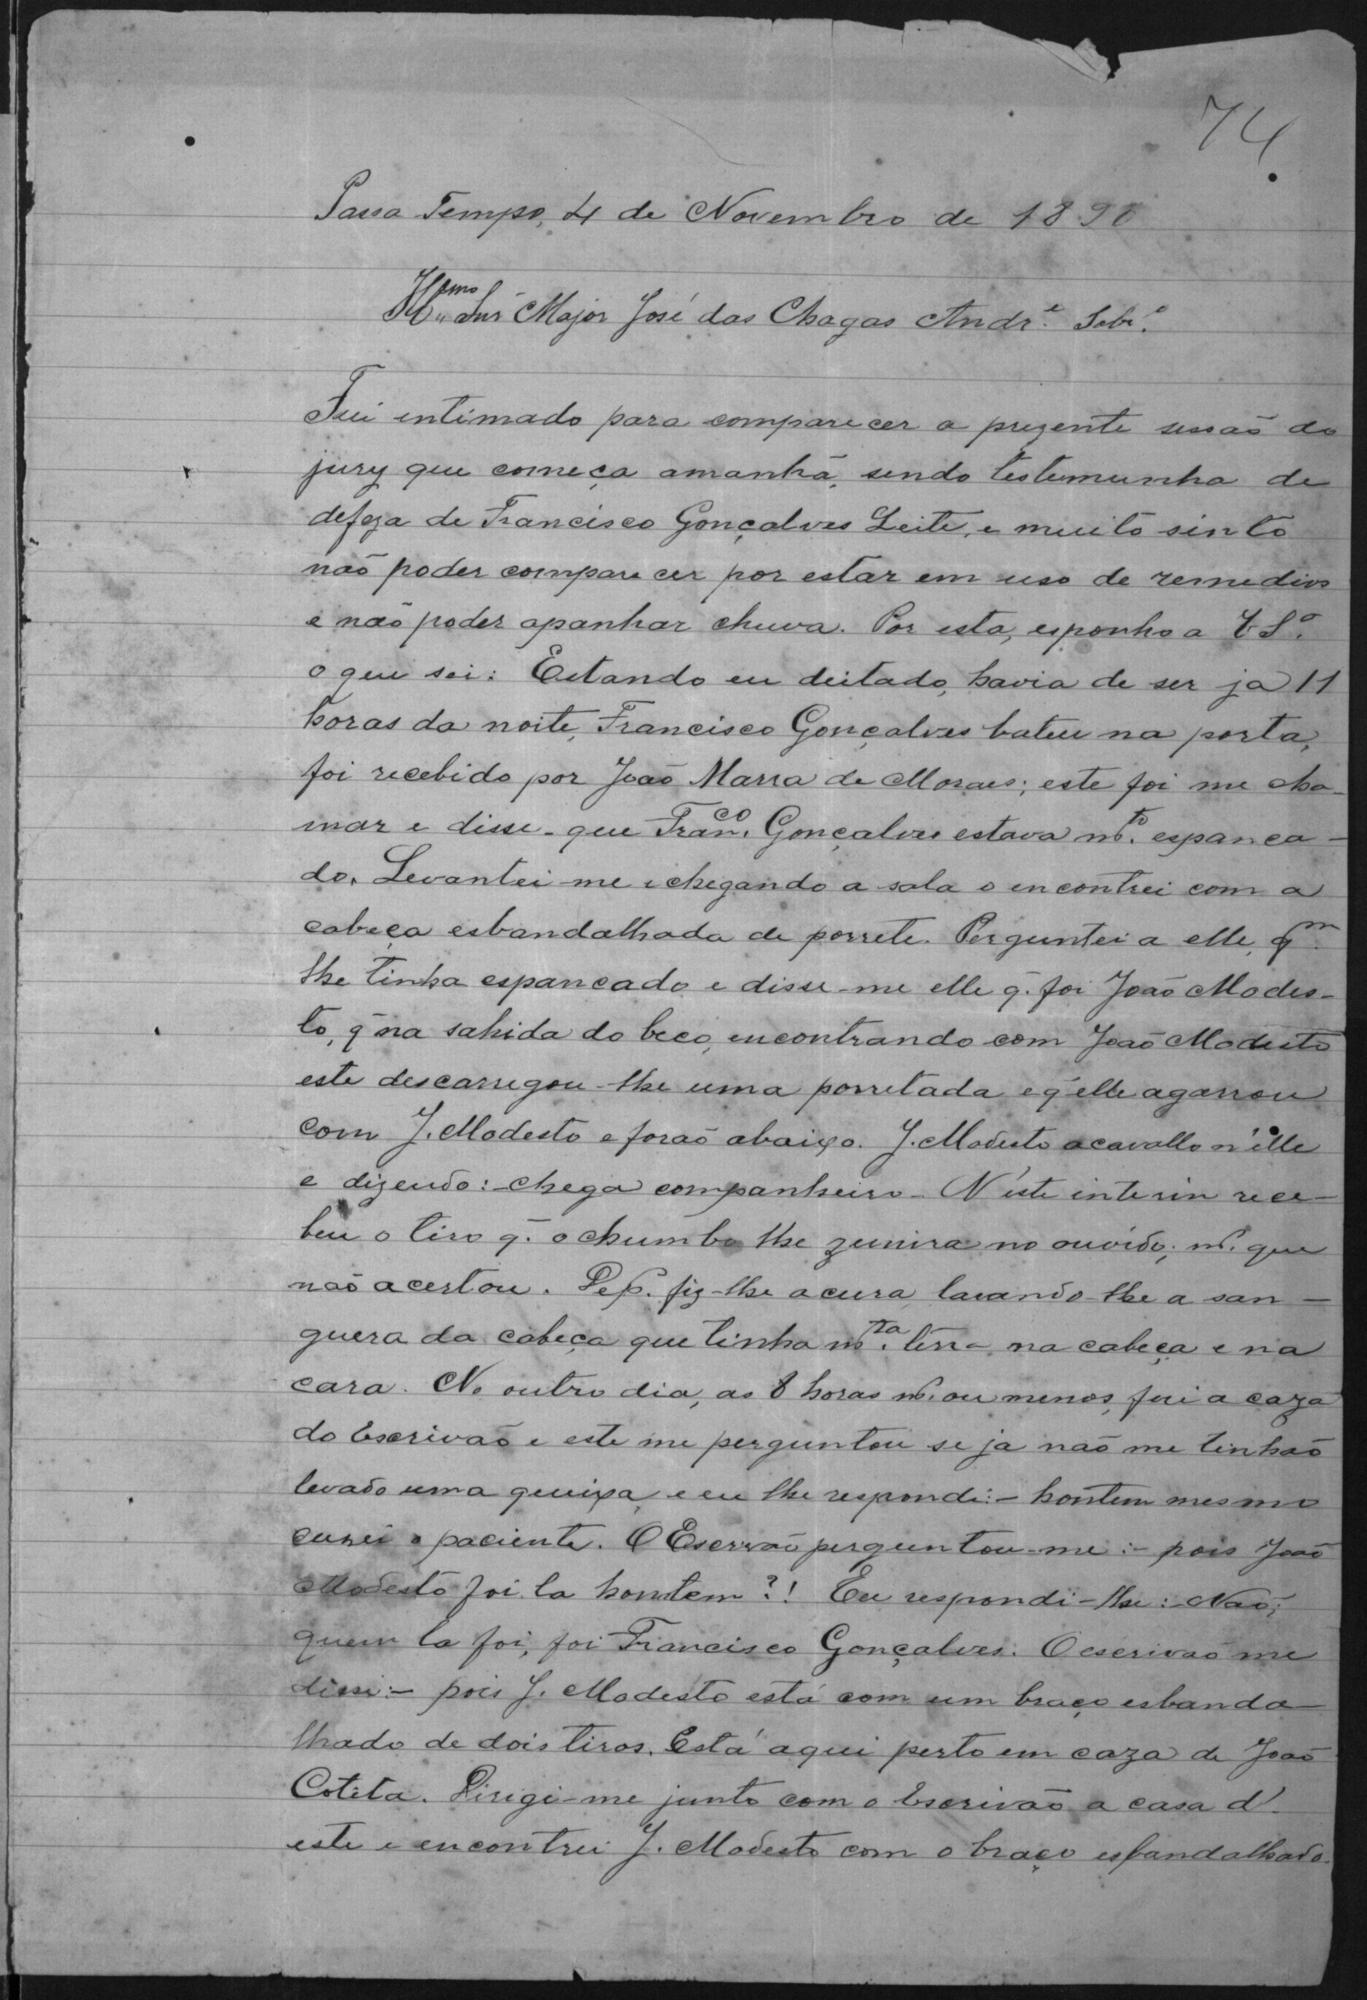 74
Passa Tempo, 4 de Novembro de 1890
Illmo Snr Major José das Chagas Andre. Sobro.
Fui intimado para comparecer a prezente sessão do
jury que começa amanhã, sendo testemunha de
defeza de Francisco Gonçalves Leite, e muito sinto
não poder comparecer por estar em uso de remedios
e não poder apanhar chuva. Por esta, esponho a V Sa.
o que sei: Estando eu deitado, havia de ser ja 11
horas da noite, Francisco Gonçalves bateu na porta,
foi recebido por João Marra de Moraes; este foi me cha-
mar e disse - que Franco. Gonçalves estava mto. espanca-
do. Levantei-me e chegando a sala o encontrei com a
cabeça esbandalhada de porrete. Perguntei a elle, qm.
lhe tinha espancado e disse-me elle q. foi João Modes-
to, q na sahida do beco, encontrando com João Modesto
este descarregou-lhe uma porretada e q elle agarrou
com J. Modesto e forão abaixo. J. Modesto a cavallo n'elle
e dizendo: - chega companheiro - N'este interin rece-
beu o tiro q. o chumbo lhe zunira no ouvido; ms. que
não acertou. Dep. fiz-lhe a cura lavando-lhe a san-
guera da cabeça que tinha mta. terra na cabeça e na
cara. No outro dia, as 8 horas ms. ou menos, fui a caza
do Escrivão e este me perguntou se ja não me tinhão
levado uma queixa, e eu lhe respondi: - hontem mesmo
curei o paciente. O Escrivão perguntou-me: - pois João
Modesto foi la hontem?! Eu respondi-lhe: - Não;
quem la foi, foi Francisco Gonçalves. O escrivão me
disse: - pois J. Modesto está com um braço esbanda-
lhado de dois tiros. Está aqui perto em caza de João
Cotéta. Dirigi-me junto com o Escrivão a casa d'-
este e encontrei J. Modesto com o braço esbandalhado.